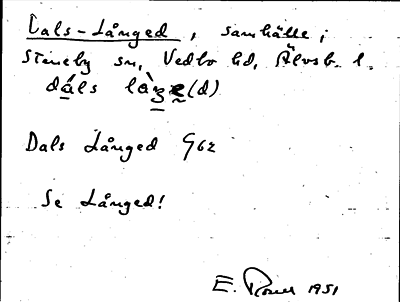 Dals-Långed, samhälle i
Steneby sn, Vedbo hd, Älvsb. l.
dáls låŋ̀e(d)
Dals Långed G62
Se Långed!
E. 1951